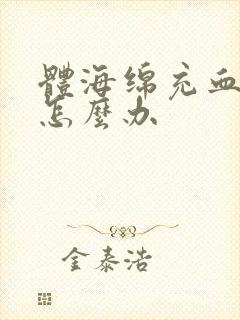 體海绵充血
怎麽办
金泰浩